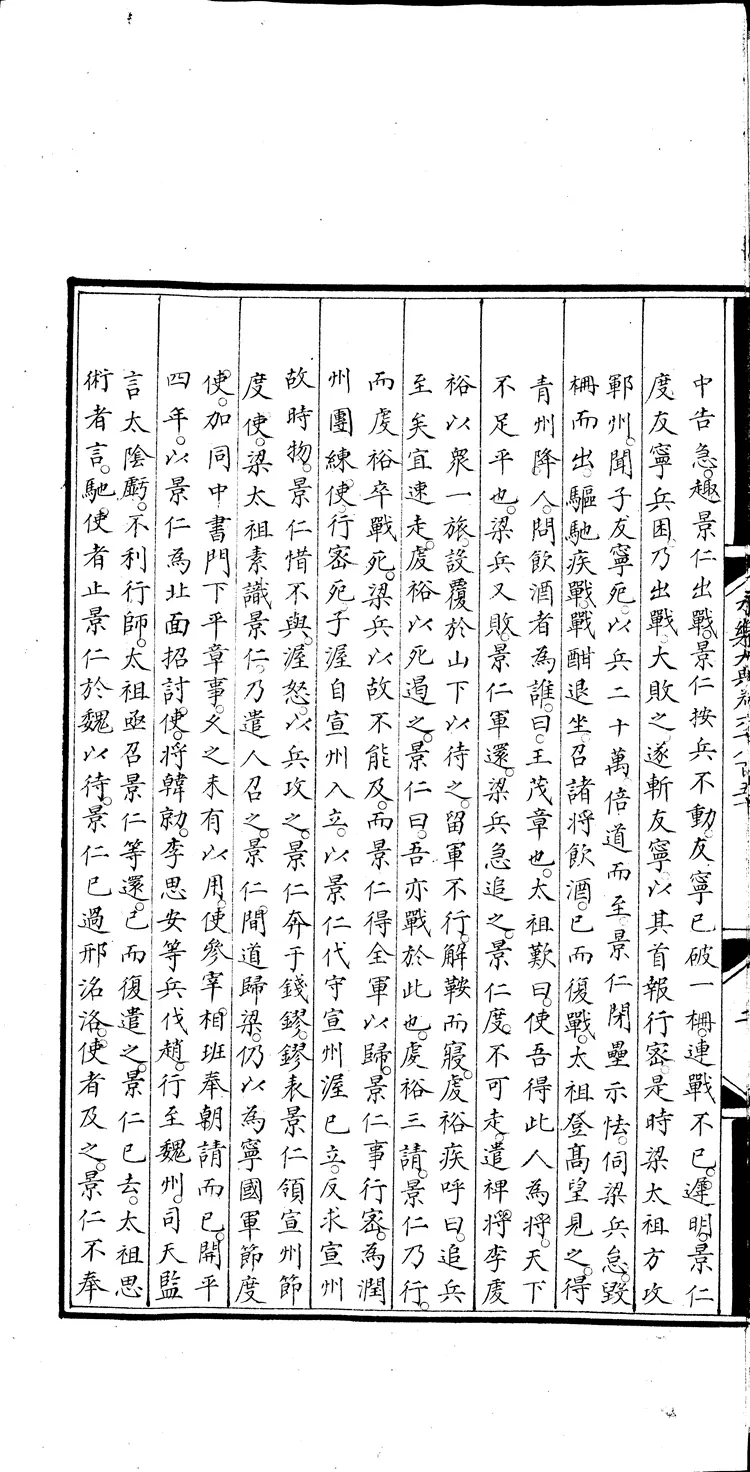 中告急。趣景仁出戰。景仁按兵不動。友寧已破一柵。連戰不已。遲明。景仁
度友寧兵困乃出戰。大敗之遂斬友寧。以其首報行密。是時梁太祖方攻
鄆州。聞子友寧死。以兵二十萬倍道而至。景仁閉壘示怯。伺梁兵怠。毀
柵而出。驅馳疾戰。戰酣退坐。召諸將飲酒。已而復戰。太祖登高望見之。得
青州降人。問飲酒者為誰。曰。王茂章也。太祖歎曰。使吾得此人為將。天下
不足平也。梁兵又敗。景仁軍還。梁兵急追之。景仁度。不可走。遣裨將李虔
裕以衆一旅。設覆於山下以待之。留軍不行。解鞍而寢。虔裕疾呼曰。追兵
至矣宜速走。虔裕以死遏之。景仁曰。吾亦戰於此也。虔裕三請。景仁乃行。
而虔裕卒戰死。梁兵以故不能及。而景仁得全軍以歸。景仁事行密。為潤
州團練使。行密死。子渥自宣州入立。以景仁代守宣州渥已立。反求宣州
故時物。景仁惜不與。渥怒。以兵攻之。景仁奔于錢鏐。鏐表景仁領宣州節
度使。梁太祖素識景仁。乃遣人召之。景仁。間道歸梁。仍以為寧國軍節度
使。加同中書門下平章事。久之未有以用。使參宰相班奉朝請而已。開平
四年。以景仁為北面招討使。將韓勍。李思安等兵伐趙。行至魏州。司天監
言太陰虧。不利行師。太祖亟召景仁等還。已而復遣之。景仁已去。太祖思
術者言。馳使者止景仁於魏以待。景仁已過邢洺洛。使者及之。景仁不奉